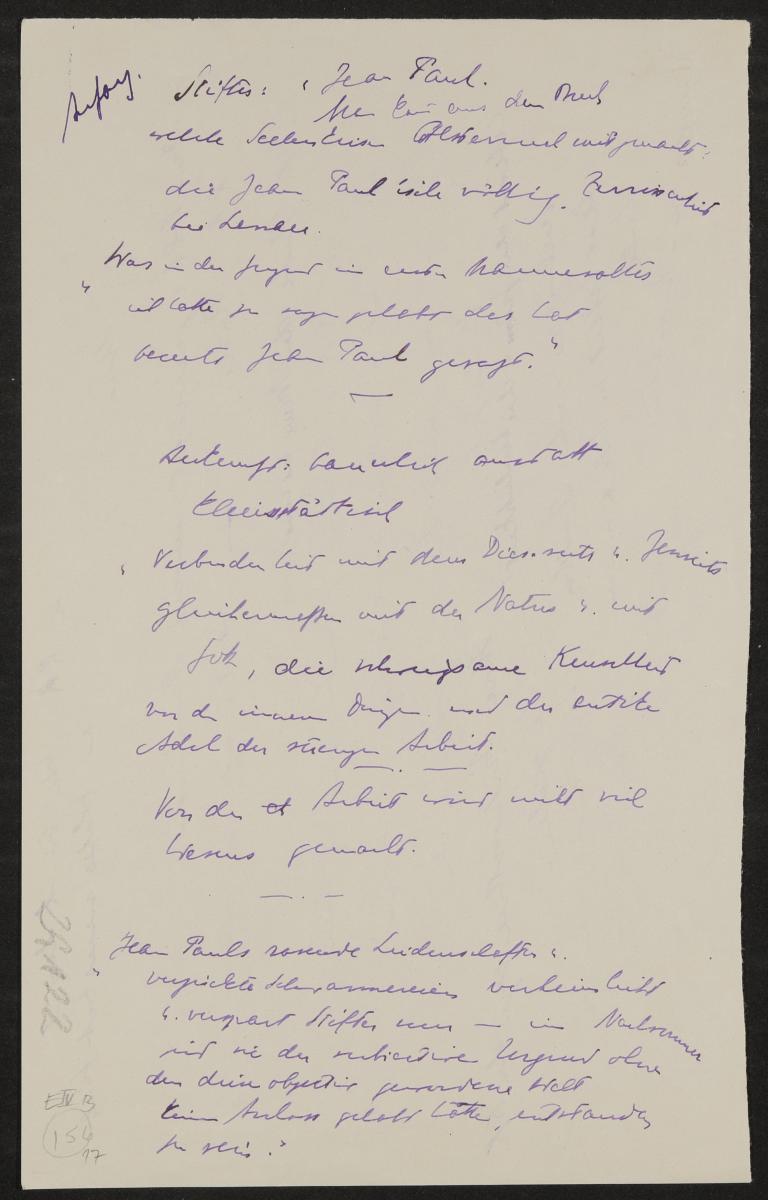 Anfang.
Stifter: " Jean Paul.
Man kann aus dem Buch
welche Seelenkrisen mitgemacht:
die Jean Paul'sche völlig. Zerrissenheit
bei Lenau.
Was in der Jugend im ersten Mannesalter
" ich hätte zu sagen gehabt das hat
bereits Jean Paul gesagt."
Herkunft: bäuerlich anstatt
kleinstädtisch
" Verbundenheit mit dem Diesseits u. Jenseits
gleichermassen mit der Natur u. mit
Gott, die schweigsame Keuschheit
vor den inneren Dingen und der antike
Adel der strengen Arbeit.
Von der Arbeit wird nicht viel
Wesens gemacht.
Jean Pauls rasende Leidenschaften u.
" verzückte Schwärmereien verheimlicht
u. verspart Stifter nur — im Nachsommer
sind sie der subjective Urgrund ohne
den diese objectiv gewordene Welt
keinen Anlass gehabt hätte, entstanden
zu sein."
28/122
E IV B
154
17